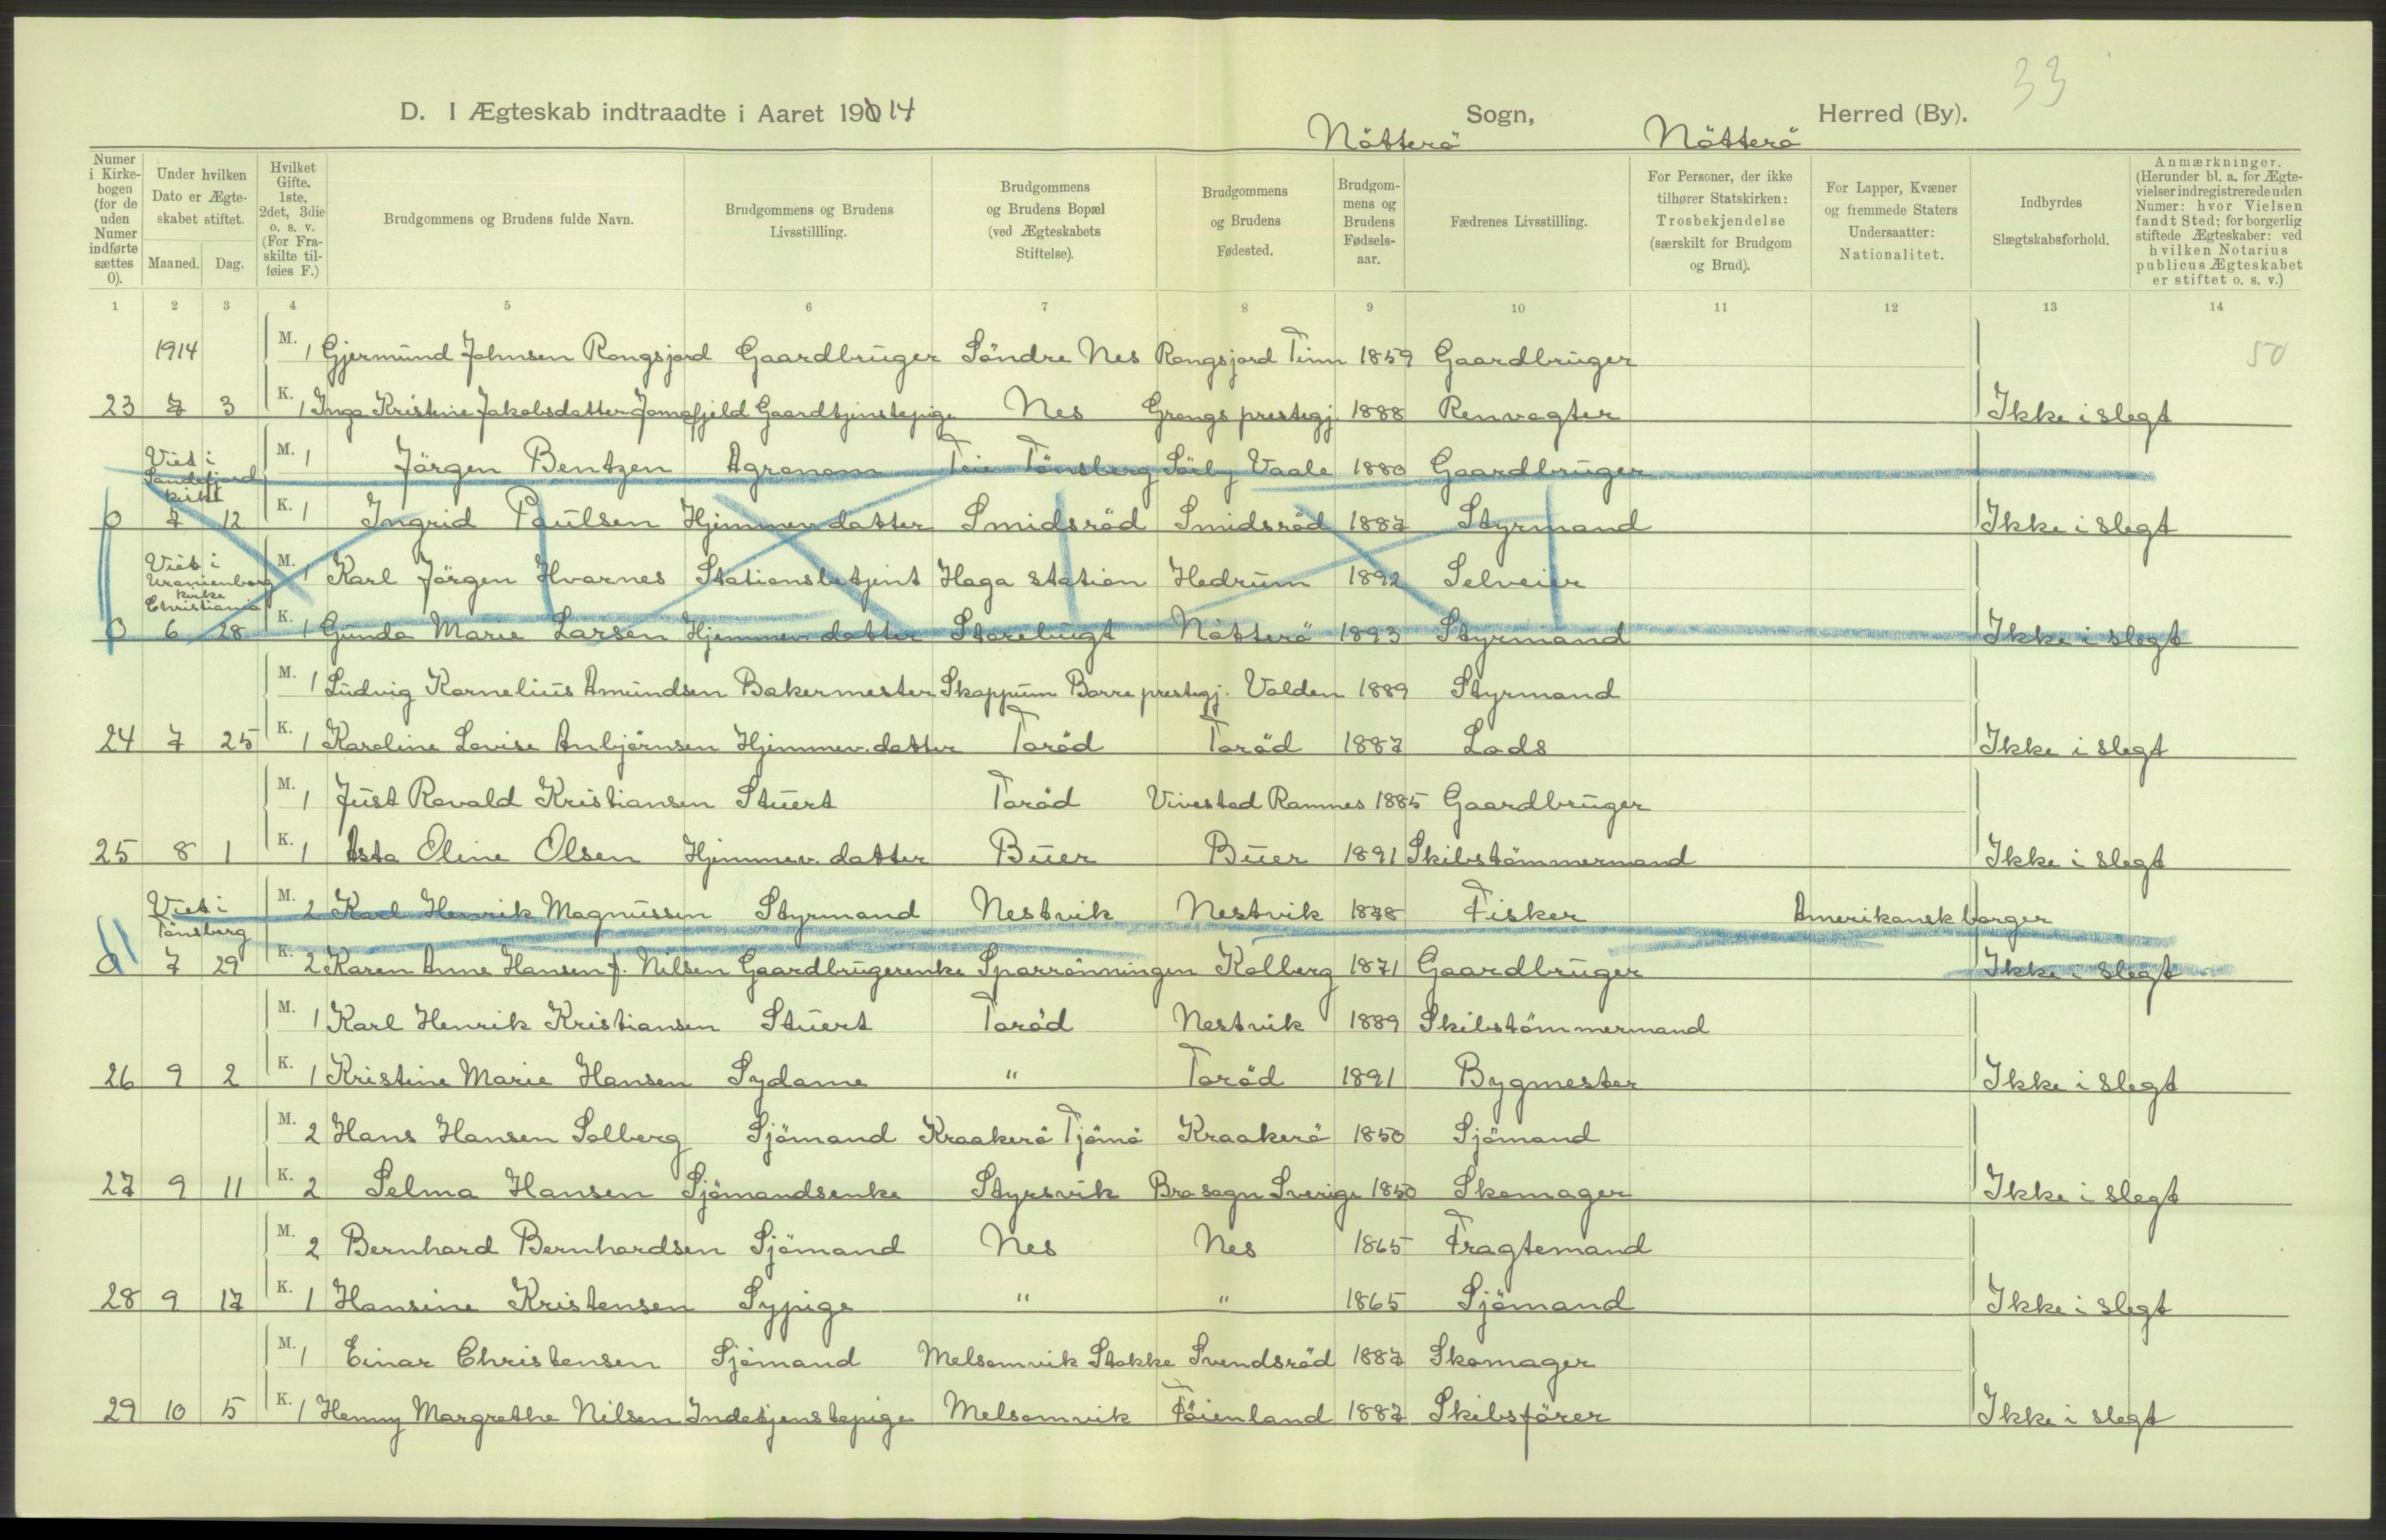 33
D. I Ægteskab indtraadte i Aaret 190 14 Nötterö Sogn, Nötterö Herred (By).
Numer i Kirke-bogen (for de uden Numer indførte sættes 0).
Under hvilken Dato er Ægte-skabet stiftet.
Maaned. Dag.
Hvilket Gifte. 1ste, 2det, 3die o. s. v. (For Fra-skilte til-føies F.)
Brudgommens og Brudens fulde Navn.
Brudgommens og Brudens Livsstillling.
Brudgommens og Brudens Bopæl (ved Ægteskabets Stiftelse).
Brudgommens og Brudens Fødested.
Brudgom-mens og Brudens Fødsels-aar.
Fædrenes Livsstilling.
For Personer, der ikke tilhører Statskirken: Trosbekjendelse (særskilt for Brudgom og Brud).
For Lapper, Kvæner og fremmede Staters Undersaatter: Nationalitet.
Indbyrdes Slægtskabsforhold.
Anmærkninger. (Herunder bl. a. for Ægte-vielser indregistrerede uden Numer: hvor Vielsen fandt Sted; for borgerlig stiftede Ægteskaber: ved hvilken Notarius publicus Ægteskabet er stiftet o. s. v.)
1 2 3 4 5 6 7 8 9 10 11 12 13 14
1914 M. 1 Gjermund Johnsen Rongsjord Gaardbruger Söndre Nes Rongsjord Tinn 1859 Gaardbruger 50
23 7 3 K. 1 Inga Kristine Jakobsdatter Jomafjeld Gaardtjenstepige Nes Grongs prestegj. 1888 Renvogter Ikke i slegt
Viet i Sandefjord kirke M. 1 Jörgen Bentzen Agronom Teie Tönsberg Sörby Vaale 1880 Gaardbruger
0 7 12 K. 1 Ingrid Paulsen Hjemmev datter Smidsröd Smidsröd 1887 Styrmand Ikke i slegt
Viet i Uranienborg kirke Christiania M. 1 Karl Jörgen Hvarnes Stationsbetjent Haga station Hedrum 1892 Selveier
0 6 28 K. 1 Gunda Marie Larsen Hjemmev datter Storebugt Nötterö 1893 Styrmand Ikke i slegt
M. 1 Ludvig Kornelius Amundsen Bakermester Skoppum Borre prestegj. Valden 1889 Styrmand
24 7 25 K. 1 Karoline Lovise Anbjörnsen Hjemmev. datter Toröd Toröd 1887 Lods Ikke i slegt
M. 1 Just Ravald Kristiansen Stuert Toröd Vivestad Ramnes 1885 Gaardbruger
25 8 1 K. 1 Asta Oline Olsen Hjemmev. datter Buer Buer 1891 Skibstömmermand Ikke i slegt
Viet i Tönsberg M. 2 Karl Henrik Magnussen Styrmand Nestvik Nestvik 1878 Fisker Amerikansk borger
0 7 29 K. 2 Karen Anne Hansen f. Nilsen Gaardbrugerenke Sparrönningen Kolberg 1871 Gaardbruger Ikke i slegt
M. 1 Karl Henrik Kristiansen Stuert Toröd Nestvik 1889 Skibstömmermand
26 9 2 K. 1 Kristine Marie Hansen Sydame " Toröd 1891 Bygmester Ikke i slegt
M. 2 Hans Hansen Solberg Sjömand Kraakerö Tjömö Kraakerö 1850 Sjömand
27 9 11 K. 2 Selma Hansen Sjömandsenke Styrsvik Bro sogn Sverige 1850 Skomager Ikke i slegt
M. 2 Bernhard Bernhardsen Sjömand Nes Nes 1865 Fragtemand
28 9 17 K. 1 Hansine Kristensen Sypige " " 1865 Sjömand Ikke i slegt
M. 1 Einar Christensen Sjömand Melsomvik Stokke Svendsröd 1887 Skomager
29 10 5 K. 1 Henny Margrethe Nilsen Indetjenstepige Melsomvik Föienland 1887 Skibsförer Ikke i slegt